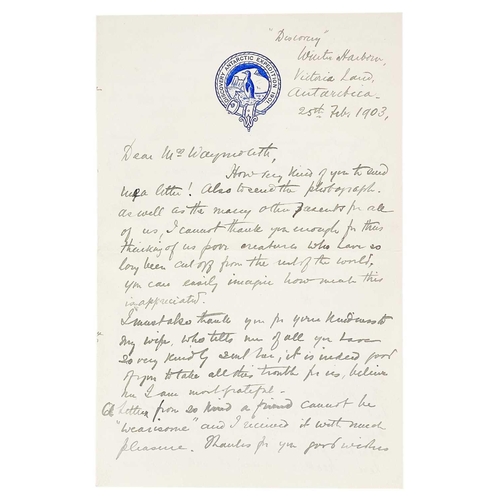 DISCOVERY ANTARCTIC EXPEDITION 1901
"Discovery"
Winter Harbour,
Victoria Land,
Antarctica.
25th Feb 1903,
Dear Mrs Waymouth,
How very kind of you to send
me a letter! Also to send the photograph.
as well as the many other presents for all
of us, I cannot thank you enough for thus
thinking of us poor creatures who have so
long been cut off from the rest of the world,
you can easily imagine how much this
is appreciated.
I must also thank you for your kindness to
my wife, who tells me of all you have
so very kindly sent her; it is indeed good
of you to take all this trouble for us, believe
me I am most grateful.
A letter from so kind a friend cannot be
"wearisome" and I received it with much
pleasure. Thanks for your good wishes